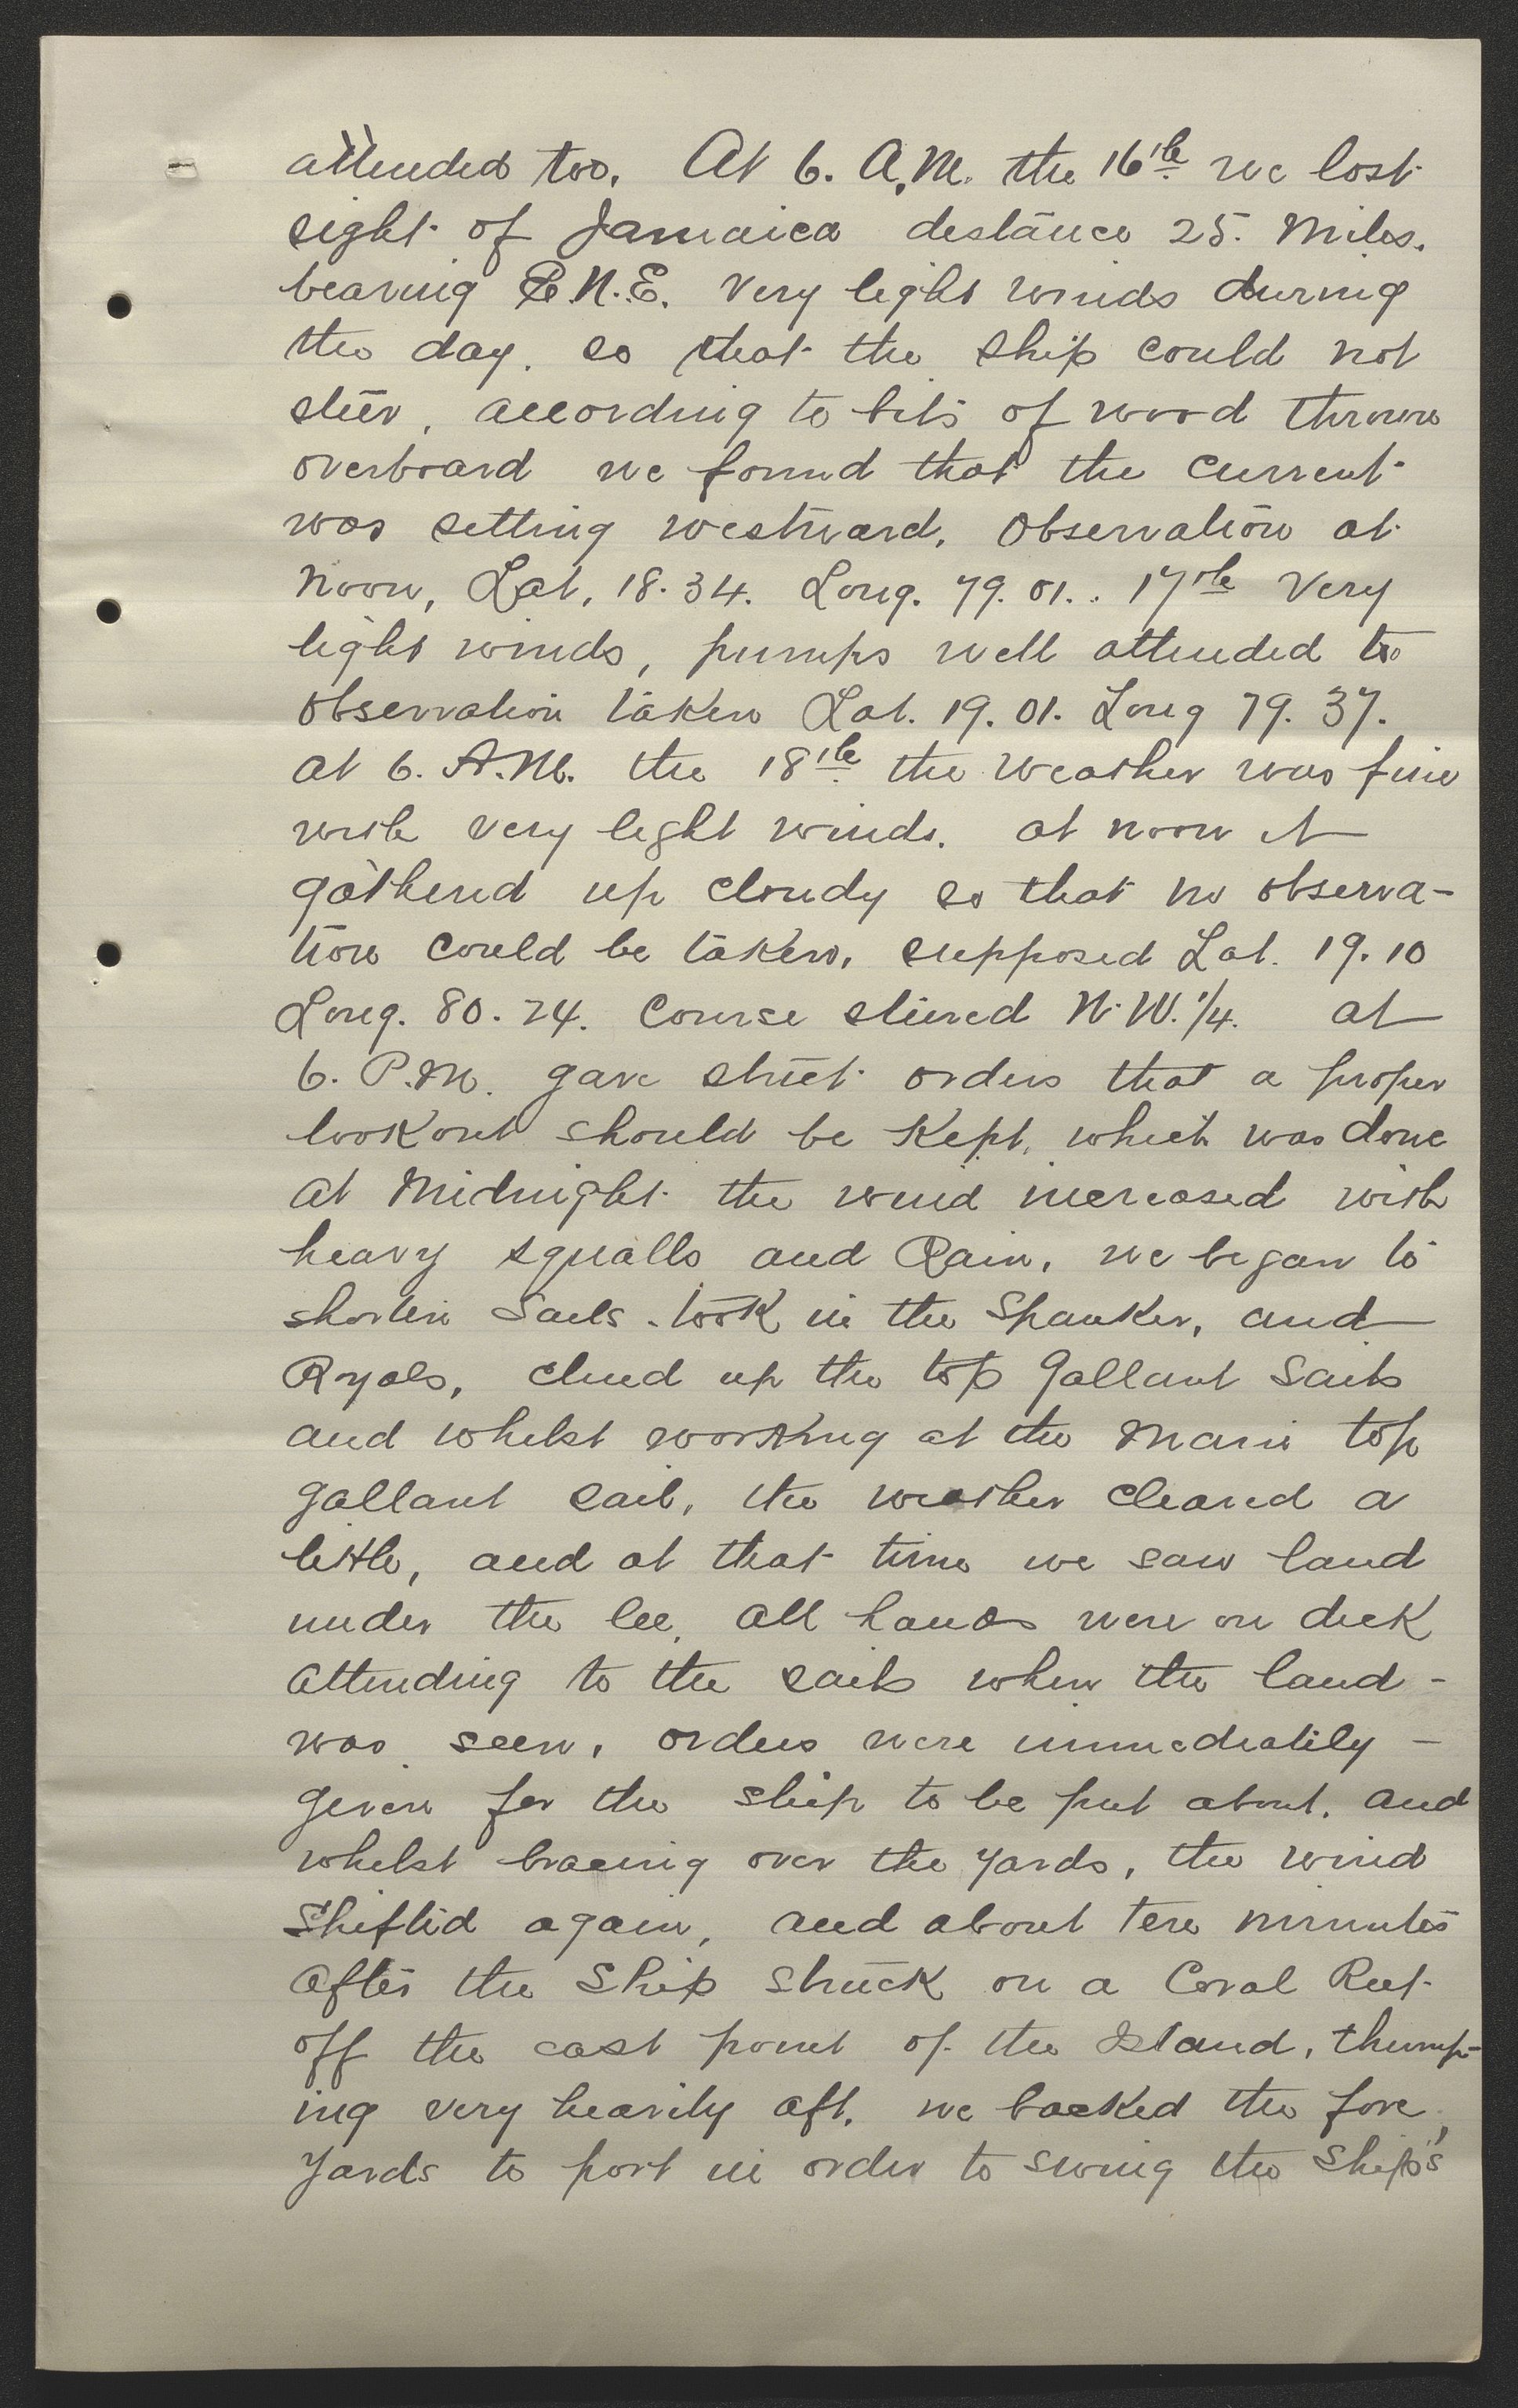 attended too. At 6. A.M. the 16th we lost
sight of Jamaica distance 25. Miles.
bearing E.N.E. Very light winds during
the day. so that the ship could not
steer, according to bits of wood thrown
overboard we found that the current
was setting westward. Observation at
Noon, Lat. 18.34. Long. 79.01.. 17th Very
light winds, pumps well attended to
observation taken Lat. 19.01. Long 79.37.
at 6. A.M. the 18th the weather was fine
with very light winds. at noon it
gatherd up cloudy so that no observa-
tion could be taken. supposed Lat. 19.10
Long. 80.24. Course steered N.W.1/4. at
6. P.M. gave strict orders that a proper
lookout should be Kept, which was done
at Midnight the wind increased with
heavy squalls and Rain, we began to
shorten Sails. took in the Spanker, and
Ryals, clued up the top gallant Sails
and whilst working at the Main top
gallant sail, the weather cleared a
little, and at that time we saw land
under the lee. all hands were on deck
attending to the sails when the land -
was seen, orders were immediatily -
given for the ship to be put about. and
whilst bracing over the yards, the wind
Shiftid again, and about ten minutes
after the Ship Struck on a Coral Reef
off the east point of the Island, thump-
ing very heavily aft. we backed the fore
Yards to port in order to swing the Ship's